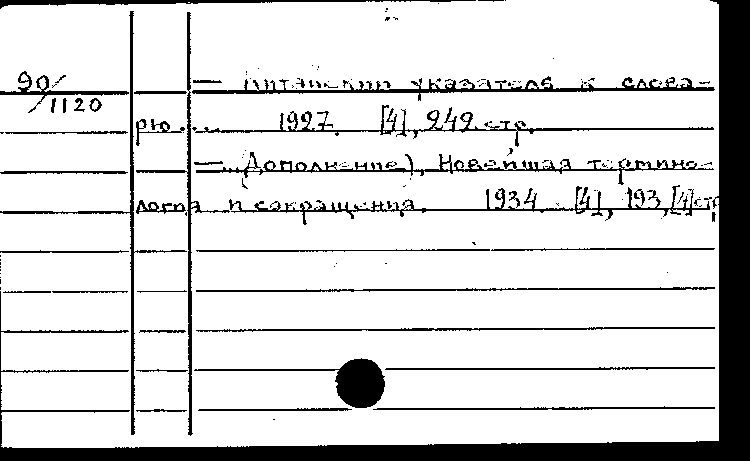 90/1120 — Китайский указатель к слова-
рю .... 1927. [4], 242 стр.
— (Дополнение). Новейшая термино-
логия и сокращения. 1934. [4], 193, [4] стр